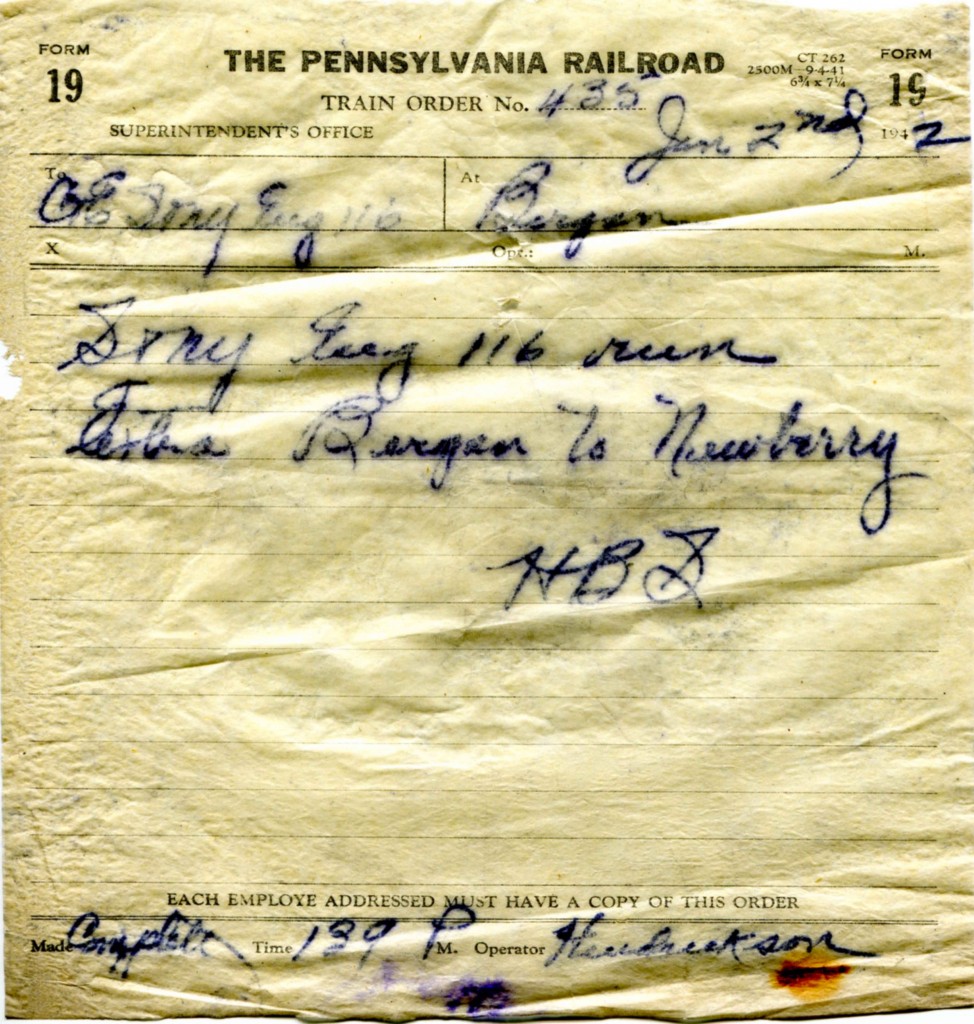 FORM 19
THE PENNSYLVANIA RAILROAD
CT 262
2500M 9-4-41
6¾ x 7¼
FORM 19
TRAIN ORDER No. 435
SUPERINTENDENT'S OFFICE
Jan 2nd, 1942
To C&E Eng 116
At Bergan
X Opr.: M.
Eng 116 run
Extra Bergan to Newberry
HBS
EACH EMPLOYE ADDRESSED MUST HAVE A COPY OF THIS ORDER
Made Complete Time 139 P M. Operator Hendrickson